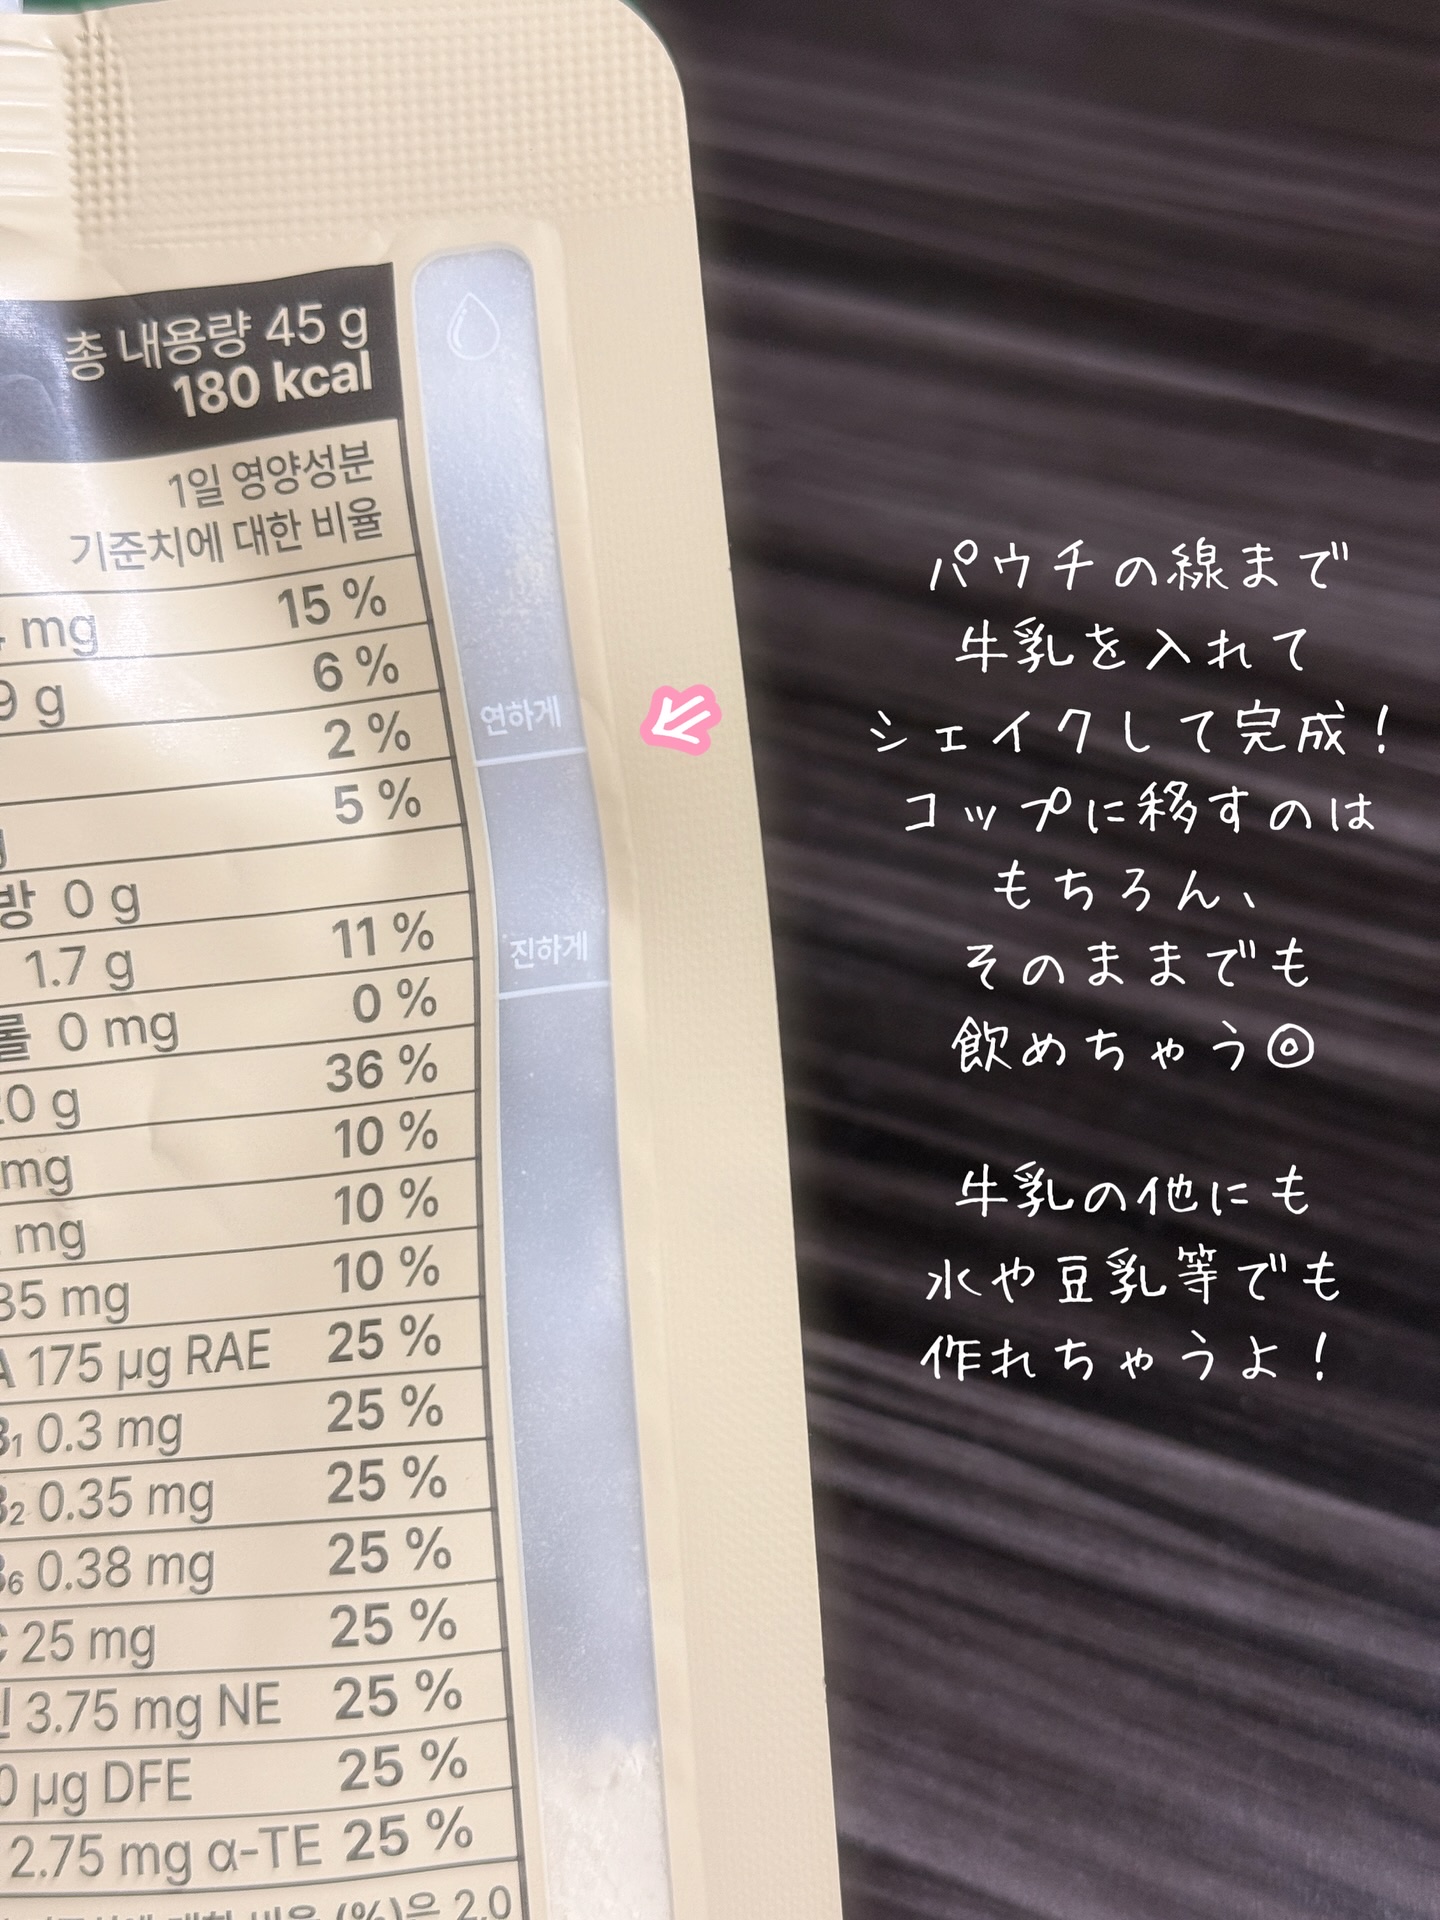 총 내용량 45 g
180 kcal
1일 영양성분
기준치에 대한 비율
mg 15 %
9 g 6 %
2 %
5 %
0 g
1.7 g 11 %
0 mg 0 %
0 g 36 %
mg 10 %
mg 10 %
35 mg 10 %
A 175 μg RAE 25 %
B₁ 0.3 mg 25 %
B₂ 0.35 mg 25 %
B₆ 0.38 mg 25 %
C 25 mg 25 %
3.75 mg NE 25 %
0 μg DFE 25 %
2.75 mg α-TE 25 %
(%)은 2,0
연하게
진하게
パウチの線まで
牛乳を入れて
シェイクして完成！
コップに移すのは
もちろん、
そのままでも
飲めちゃう◎
牛乳の他にも
水や豆乳等でも
作れちゃうよ！